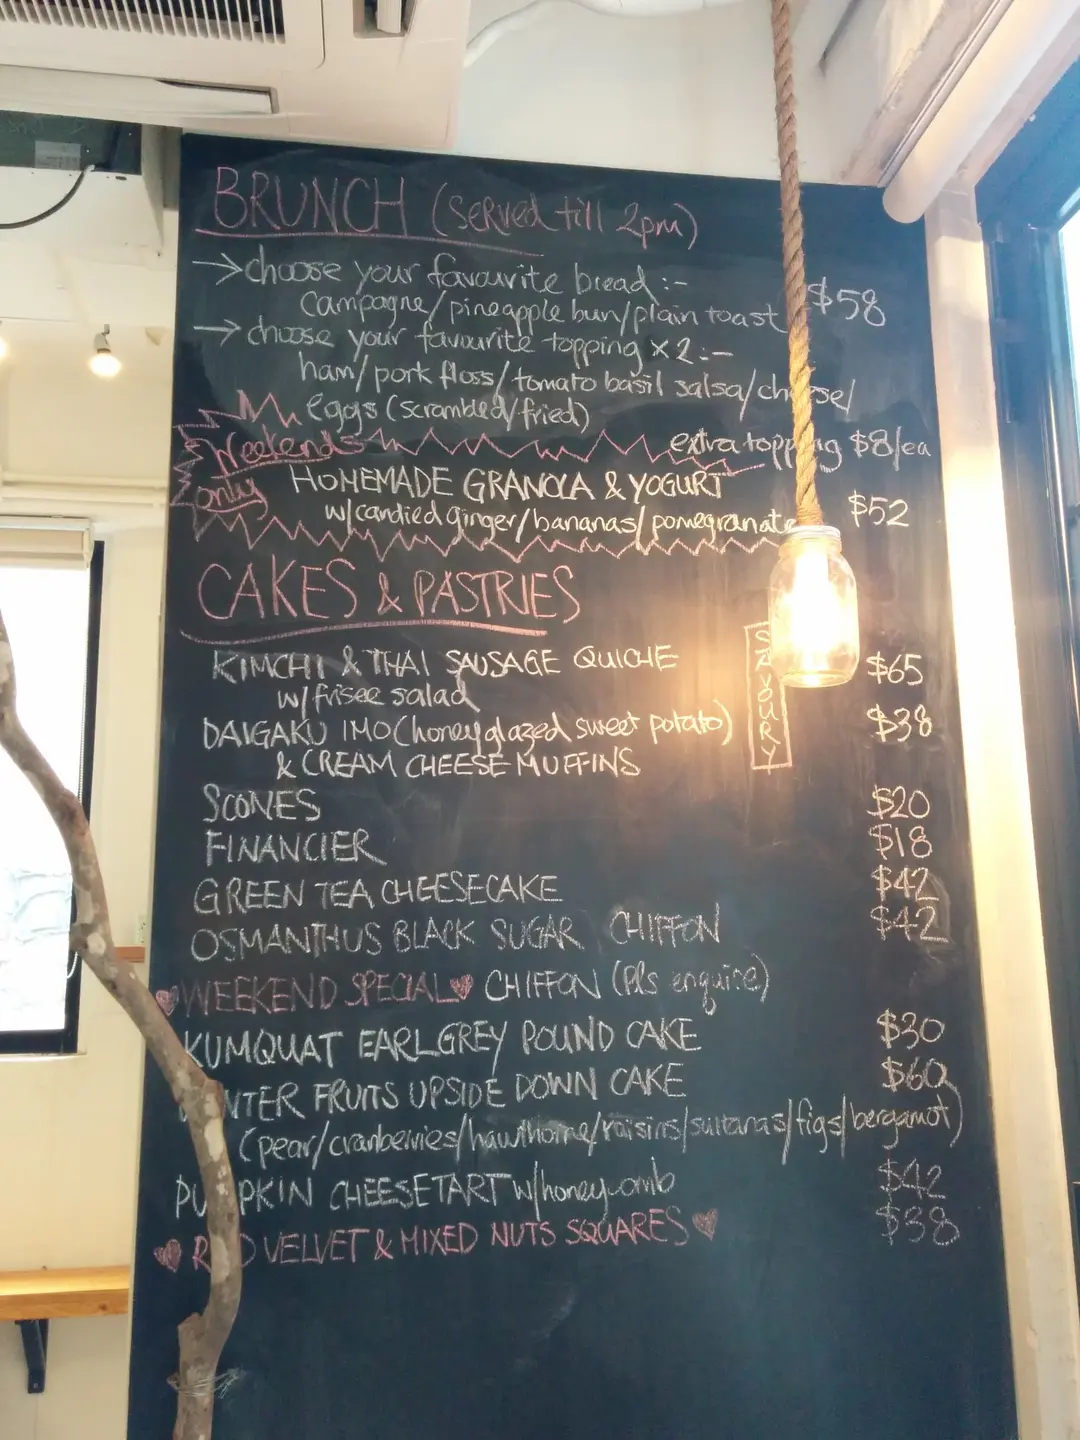 BRUNCH (served till 2pm)
→ choose your favourite bread :-
campagne/pineapple bun/plain toast $58
→ choose your favourite topping x 2 :-
ham/pork floss/tomato basil salsa/cheese/
eggs (scrambled/fried)
extra topping $8/ea
Weekends only
HOMEMADE GRANOLA & YOGURT
w/candied ginger/bananas/pomegranate $52
CAKES & PASTRIES
SAVOURY
KIMCHI & THAI SAUSAGE QUICHE $65
w/frisee salad
DAIGAKU IMO (honey glazed sweet potato) $38
& CREAM CHEESE MUFFINS
SCONES $20
FINANCIER $18
GREEN TEA CHEESECAKE $42
OSMANTHUS BLACK SUGAR CHIFFON $42
♥WEEKEND SPECIAL♥ CHIFFON (Pls enquire)
KUMQUAT EARLGREY POUND CAKE $30
WINTER FRUITS UPSIDE DOWN CAKE $60
(pear/cranberries/hawthorne/raisins/sultanas/figs/bergamot)
PUMPKIN CHEESETART w/honeycomb $42
♥ RED VELVET & MIXED NUTS SQUARES ♥ $38